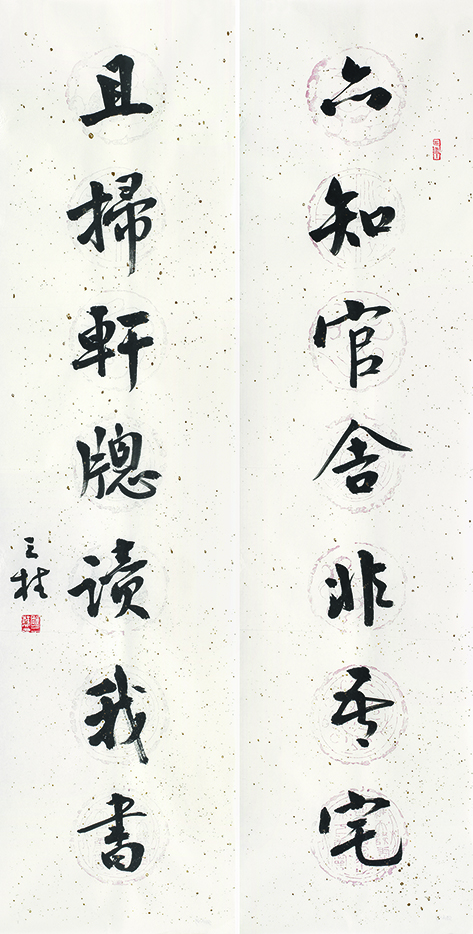 亦知官舍非吾宅
且掃軒牕读我書